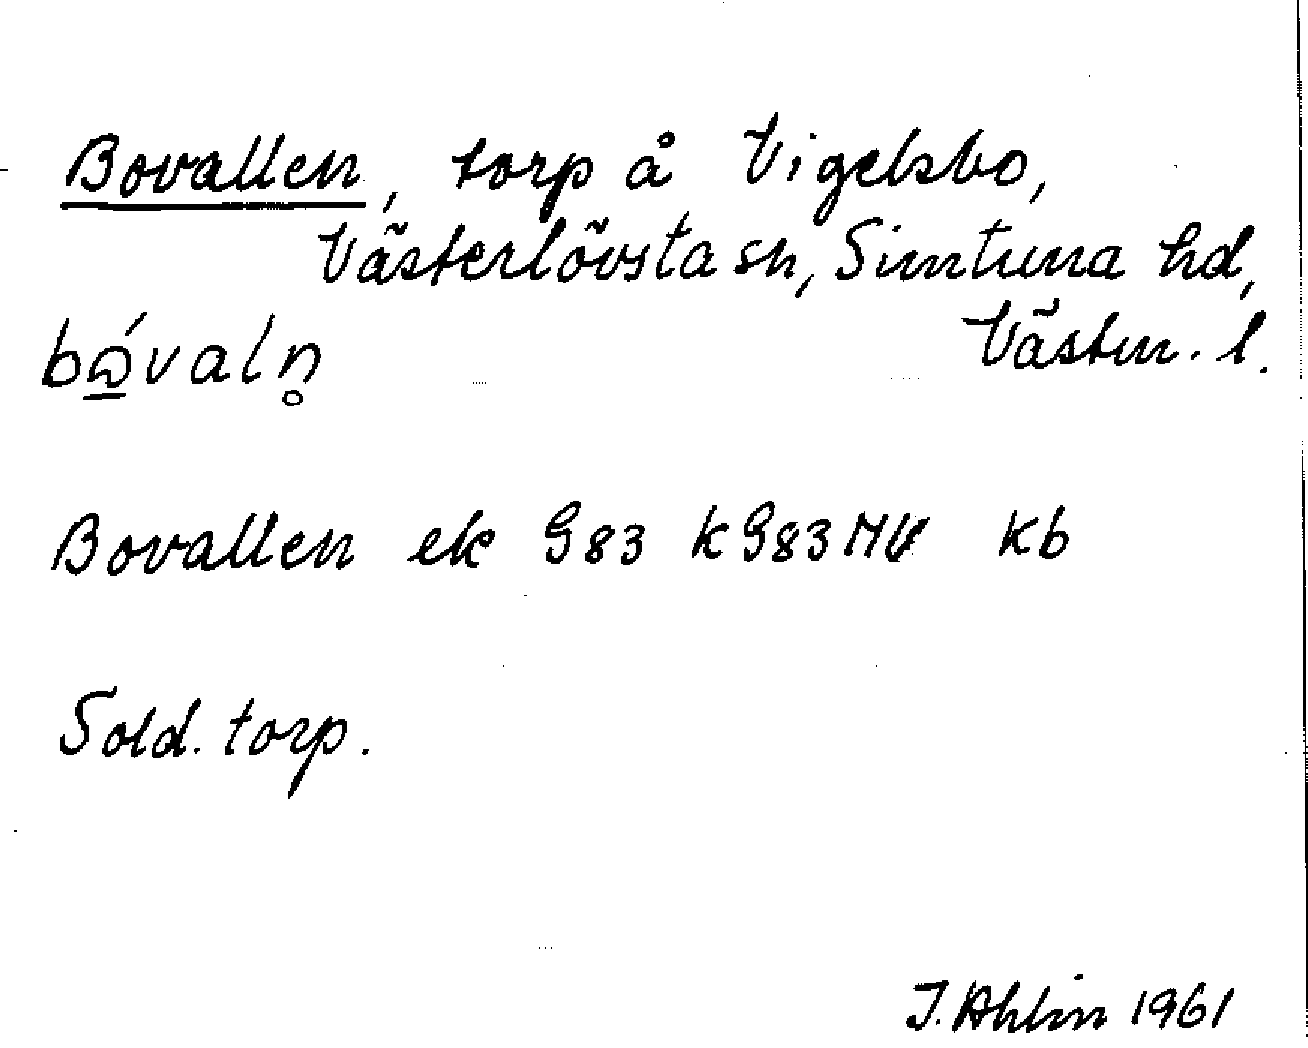 Bovallen, torp å Vigelsbo,
Västerlövsta sn, Simtuna hd,
Västm. l.
bǫ́valn̥
Bovallen ek G83 kG83NV kb
Sold. torp.
J. Ahlin 1961